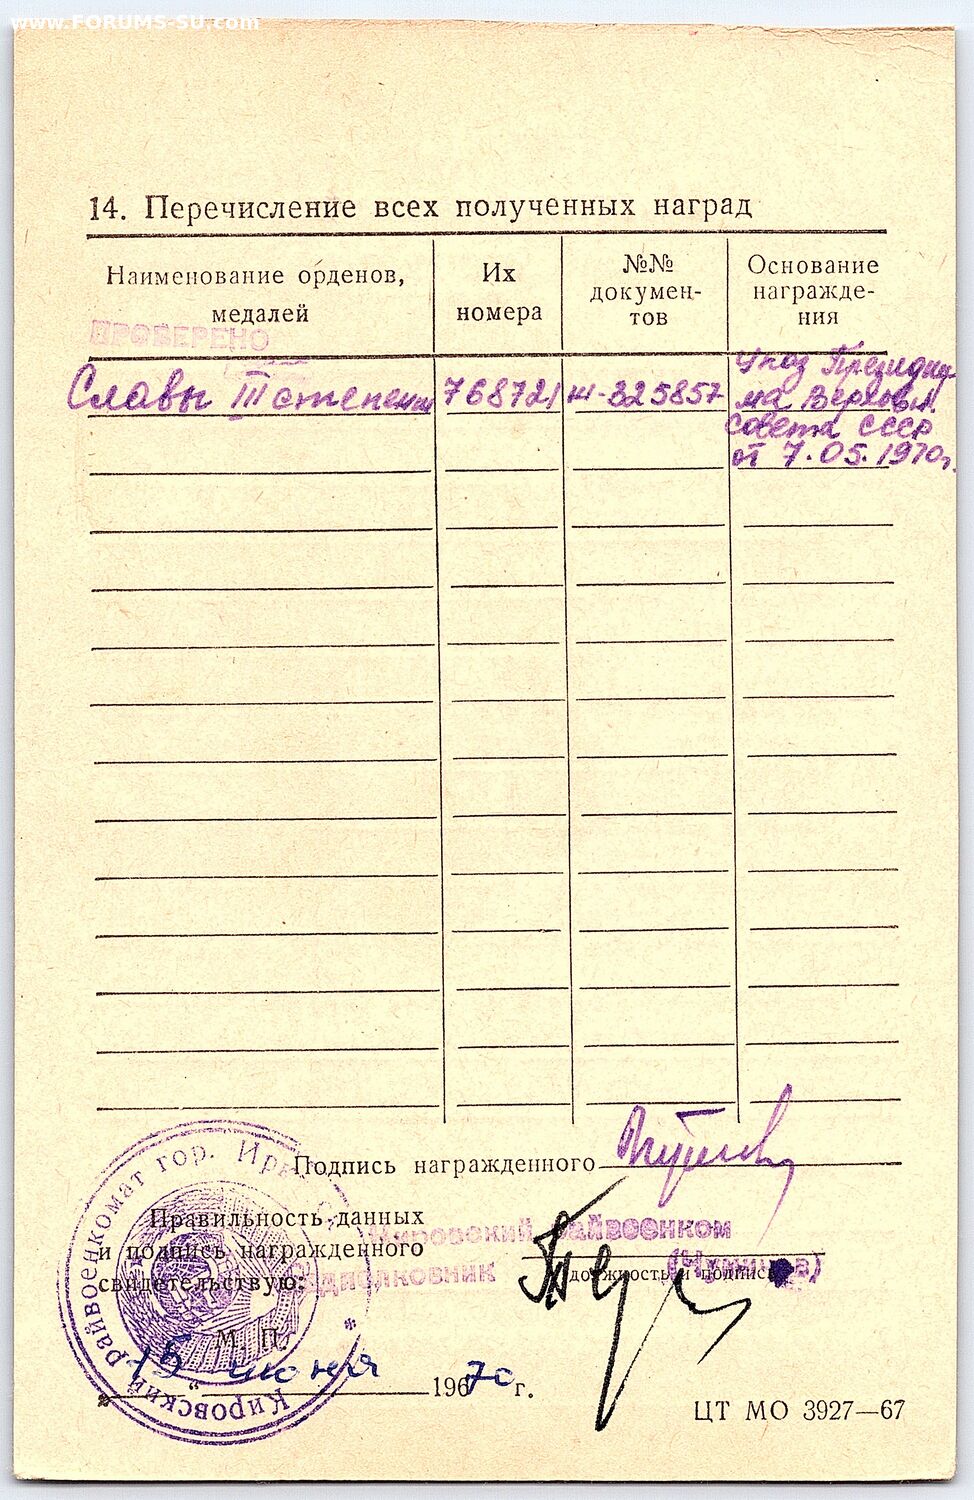 www.FORUMS-SU.com
14. Перечисление всех полученных наград
Наименование орденов, медалей
Их номера
№№ докумен-
тов
Основание
награжде-
ния
ПРОВЕРЕНО
Славы III степени
768721
Ж-325857
Указ Президиу-
ма Верховн.
Совета СССР
от 7.05.1970г.
Подпись награжденного
Правильность данных
и подпись награжденного
свидетельствую:
Кировский райвоенком
подполковник
должность и подпись
Кировский райвоенкомат гор.
М. П.
15 июня 1970 г.
ЦТ МО 3927—67